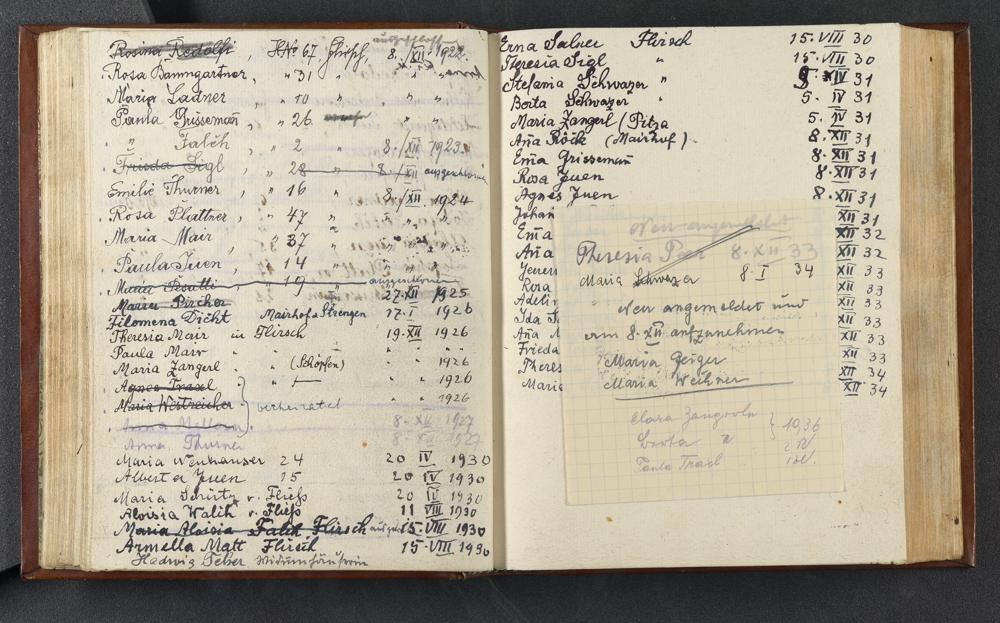 ausgeschlossen
Rosina Redolfi, H.No 67, Flirsch, 8./XII 1922.
Rosa Baumgartner, " 31 " " "
Maria Ladner, " 10 " " "
Paula Grissemañ " 26
" Falch " 2 " 8./XII 1923.
Frieda Sigl " 28 " 8./XII ausgeschlossen
Emilie Thurner " 16 " 8./XII 1924
Rosa Plattner, " 47 " " "
Maria Mair " 37 "
Paula Juen, " 14 " " "
Maria 19 "
Maria Pircher 27.XII 1925
Filomena Dicht Mairhof a Strengen 17.I 1926
Theresia Mair in Flirsch 19.XII 1926
Paula Marr " " " "
Maria Zangerl " (Schöpfen) " " 1926
Agnes Traxl " " " 1926
Maria Westreicher } verheiratet 1926
Anna 8. XII 1927
Anna Thurner 8. XII 1927
Maria Neuhauser 24 20 IV 1930
Alberta Juen 15 20 IV 1930
Maria Schütz v. Fließ 20 IV 1930
Aloisia Walch v. Fließ 11 VIII 1930
Maria Aloisia Falch Flirsch 15. VIII 1930
Armella Matt Flirsch 15. VIII 1930
Hadwig
Erna Salner Flirsch 15. VIII 30
Theresia Sigl " 15. VIII 30
Stefania Schwazer " IV 31
Berta Schwazer " 5. IV 31
Maria Zangerl (Pitza 5. IV 31
Aña Röck (Mairhof). 8. XII 31
Em̃a Grissemañ 8. XII 31
Rosa Juen 8. XII 31
Agnes Juen 8. XII 31
Johan XII 31
Em̃a XII 32
Aña XII 32
XII 33
Rosa XII 33
Adelin XII 33
Ida XII 33
Aña XII 33
Frieda XII 33
Theres XII 34
Maria XII 34
Neu angemeldet
Theresia 8. XII 33
Maria Schwazer 8. I 34
Neu angemeldet und
am 8. XII aufzunehmen
Maria Geiger
Maria Weihner
Clara Zangerle
Berta " } 10,36
Paula Traxl